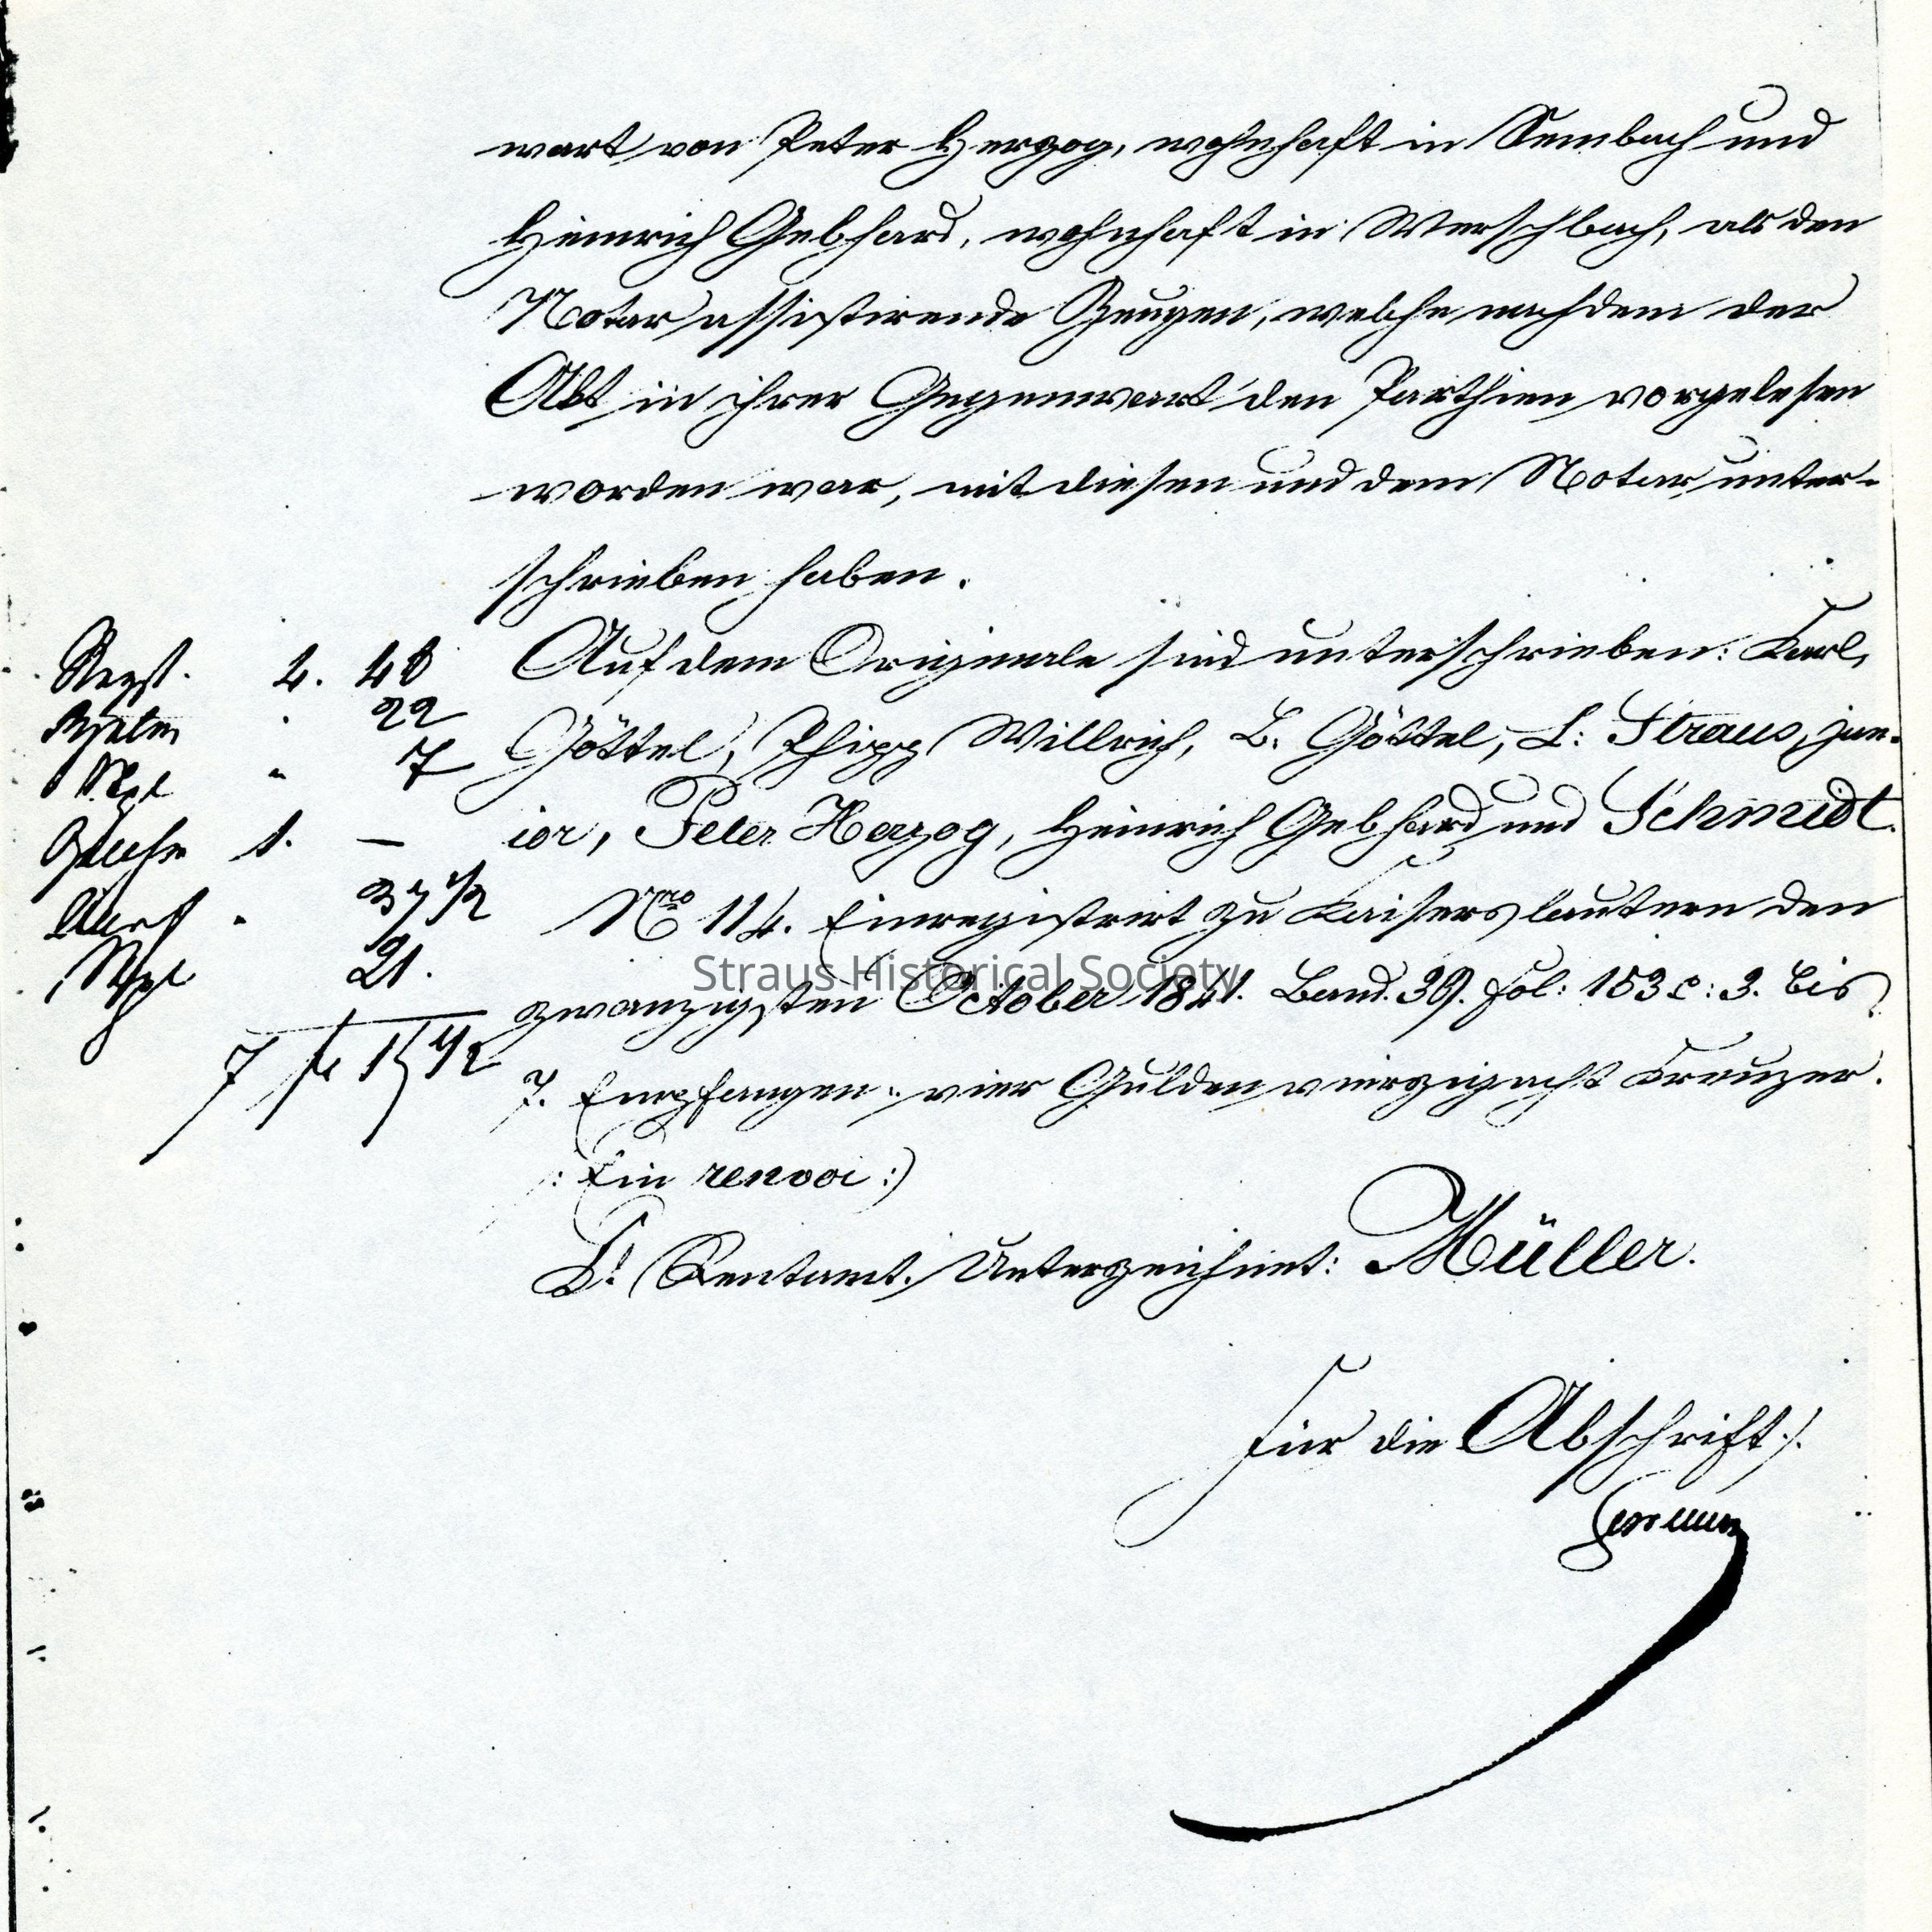 wart von Peter Herzog, wohnhaft in Sembach und
Heinrich Gebhard, wohnhaft in Merschbach, als den
Notar assistirende Zeugen, welche nachdem der
Akt in ihrer Gegenwart den Parthien vorgelesen
worden war, mit diesen und dem Notar unter-
schrieben haben.
Auf dem Originale sind unterschrieben: Karl
Göttel, Philipp Willrich, L. Göttel, L: Straus, jun-
ior, Peter Herzog, Heinrich Gebhard und Schmidt.
Nro 114. Einregistrirt zu Kaiserslautern den
zwanzigsten October 1841. Band. 39. fol: 153 c: 3. bis
7. Empfangen: vier Gulden vierzigacht Kreuzer.
(: Ein renvoi :)
Kl. Rentamt. Unterzeichnet: Müller.
Für die Abschrift
Regst. 4. 48
22
7
1. —
37 1/2
21.
7 fl 15 1/2
Straus Historical Society